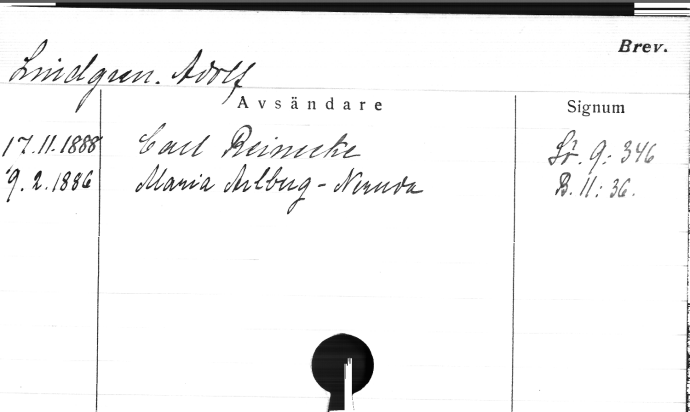 Brev.
Lindgren. Adolf
Avsändare Signum
17.11.1888 Carl Reinecke Sö. 9: 346
9.2.1886 Maria Arlberg-Neruda B. 11: 36.